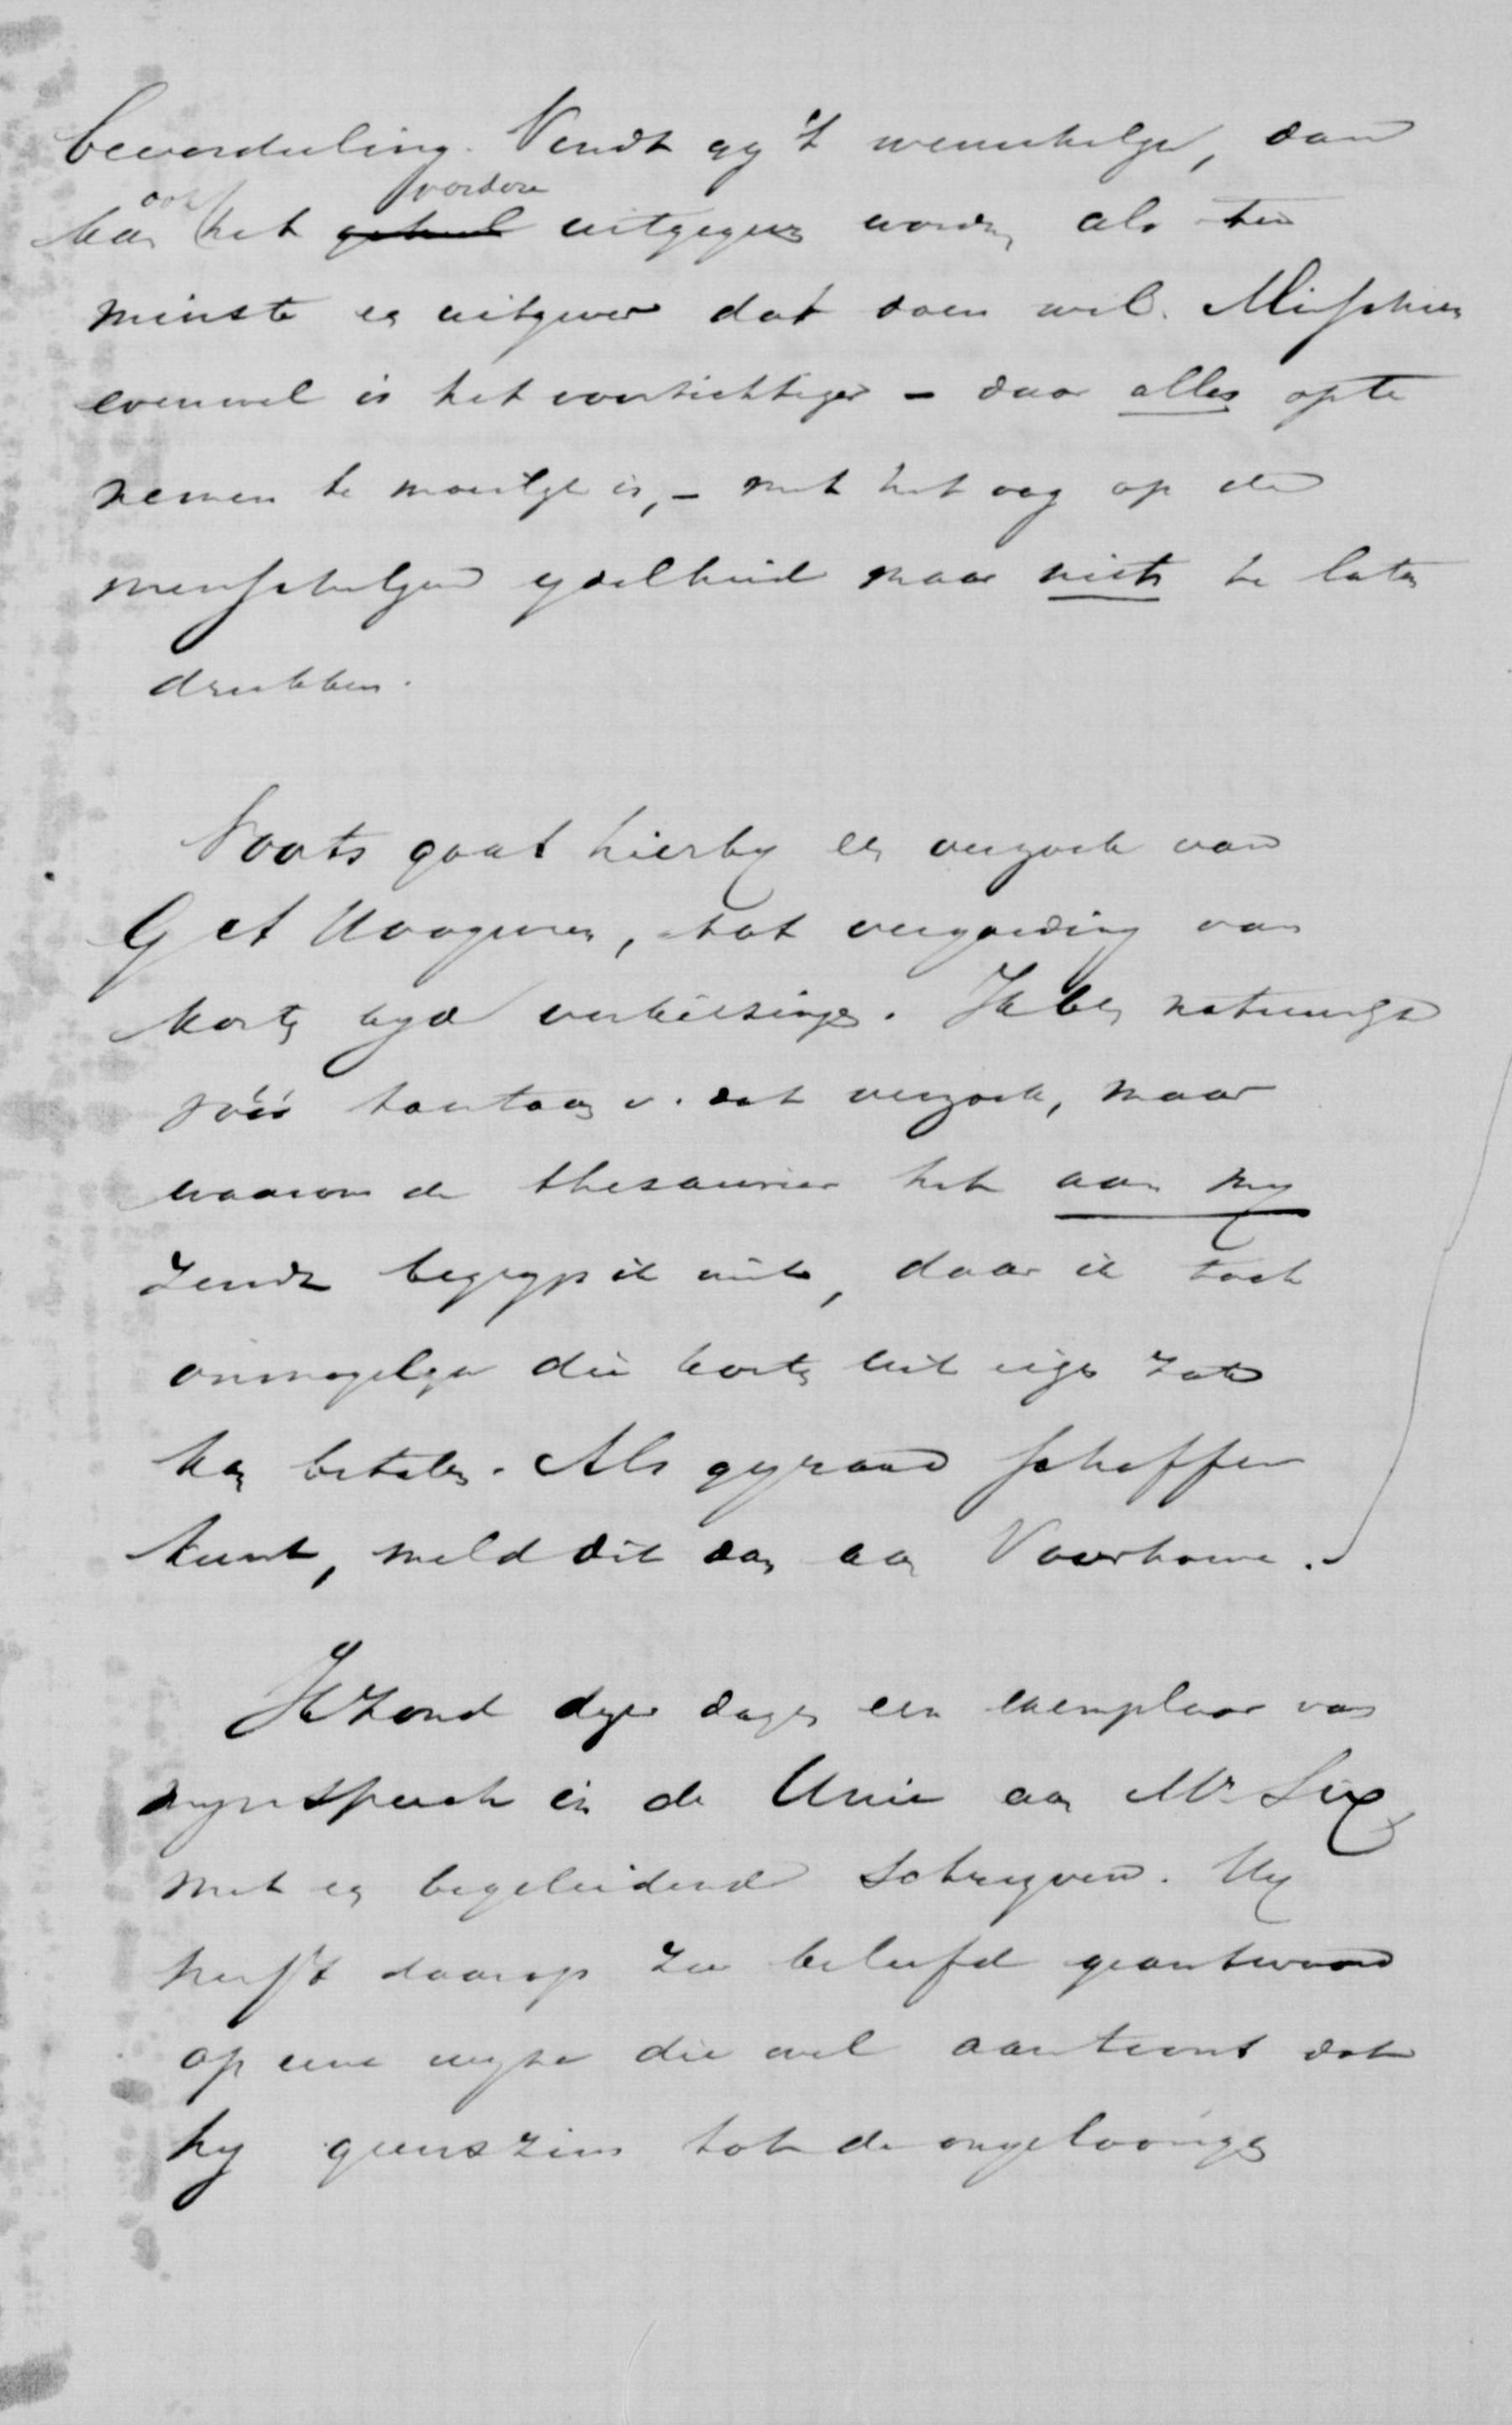 beoordeeling. Vindt gy 't wenschelyk, dan
kan ook het verdere uitgegeven worden als ten
minste een uitgever dat doen wil. Misschien
evenwel is het voorzichtiger – daar alles op te
nemen te moeilyk is, – met het oog op de
menschelyke ydelheid maar niets te laten
drukken.
Voorts gaat hierby een verzoek van
G et Hoogeveen, tot vergoeding van
kosten byd verkiezingen. Ik ben natuurlyk
vóór toestaan v. dat verzoek, maar
waarom de thesaurier het aan my
zendt begryp ik niet, daar ik toch
onmogelyk die kosten uit eigen zak
kan betalen. Als gy raad schaffen
kunt, meld dit dan aan Voorhoeve.
Ik zond dezer dagen een exemplaar van
myn speech in de Unie aan Mr Six
met een begeleidend schryven. Hy
heeft daarop zeer beleefd geantwoord
op eene wyze die wel aantoont dat
hy geenszins tot de ongeloovigen